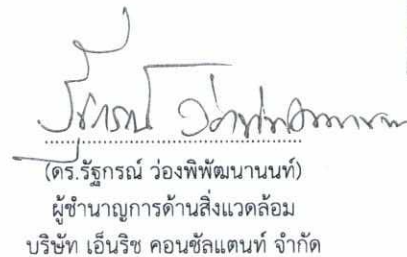 (ดร.รัฐกรณ์ ว่องพิพัฒนานนท์)
ผู้ชำนาญการด้านสิ่งแวดล้อม
บริษัท เอ็นริช คอนซัลแตนท์ จำกัด